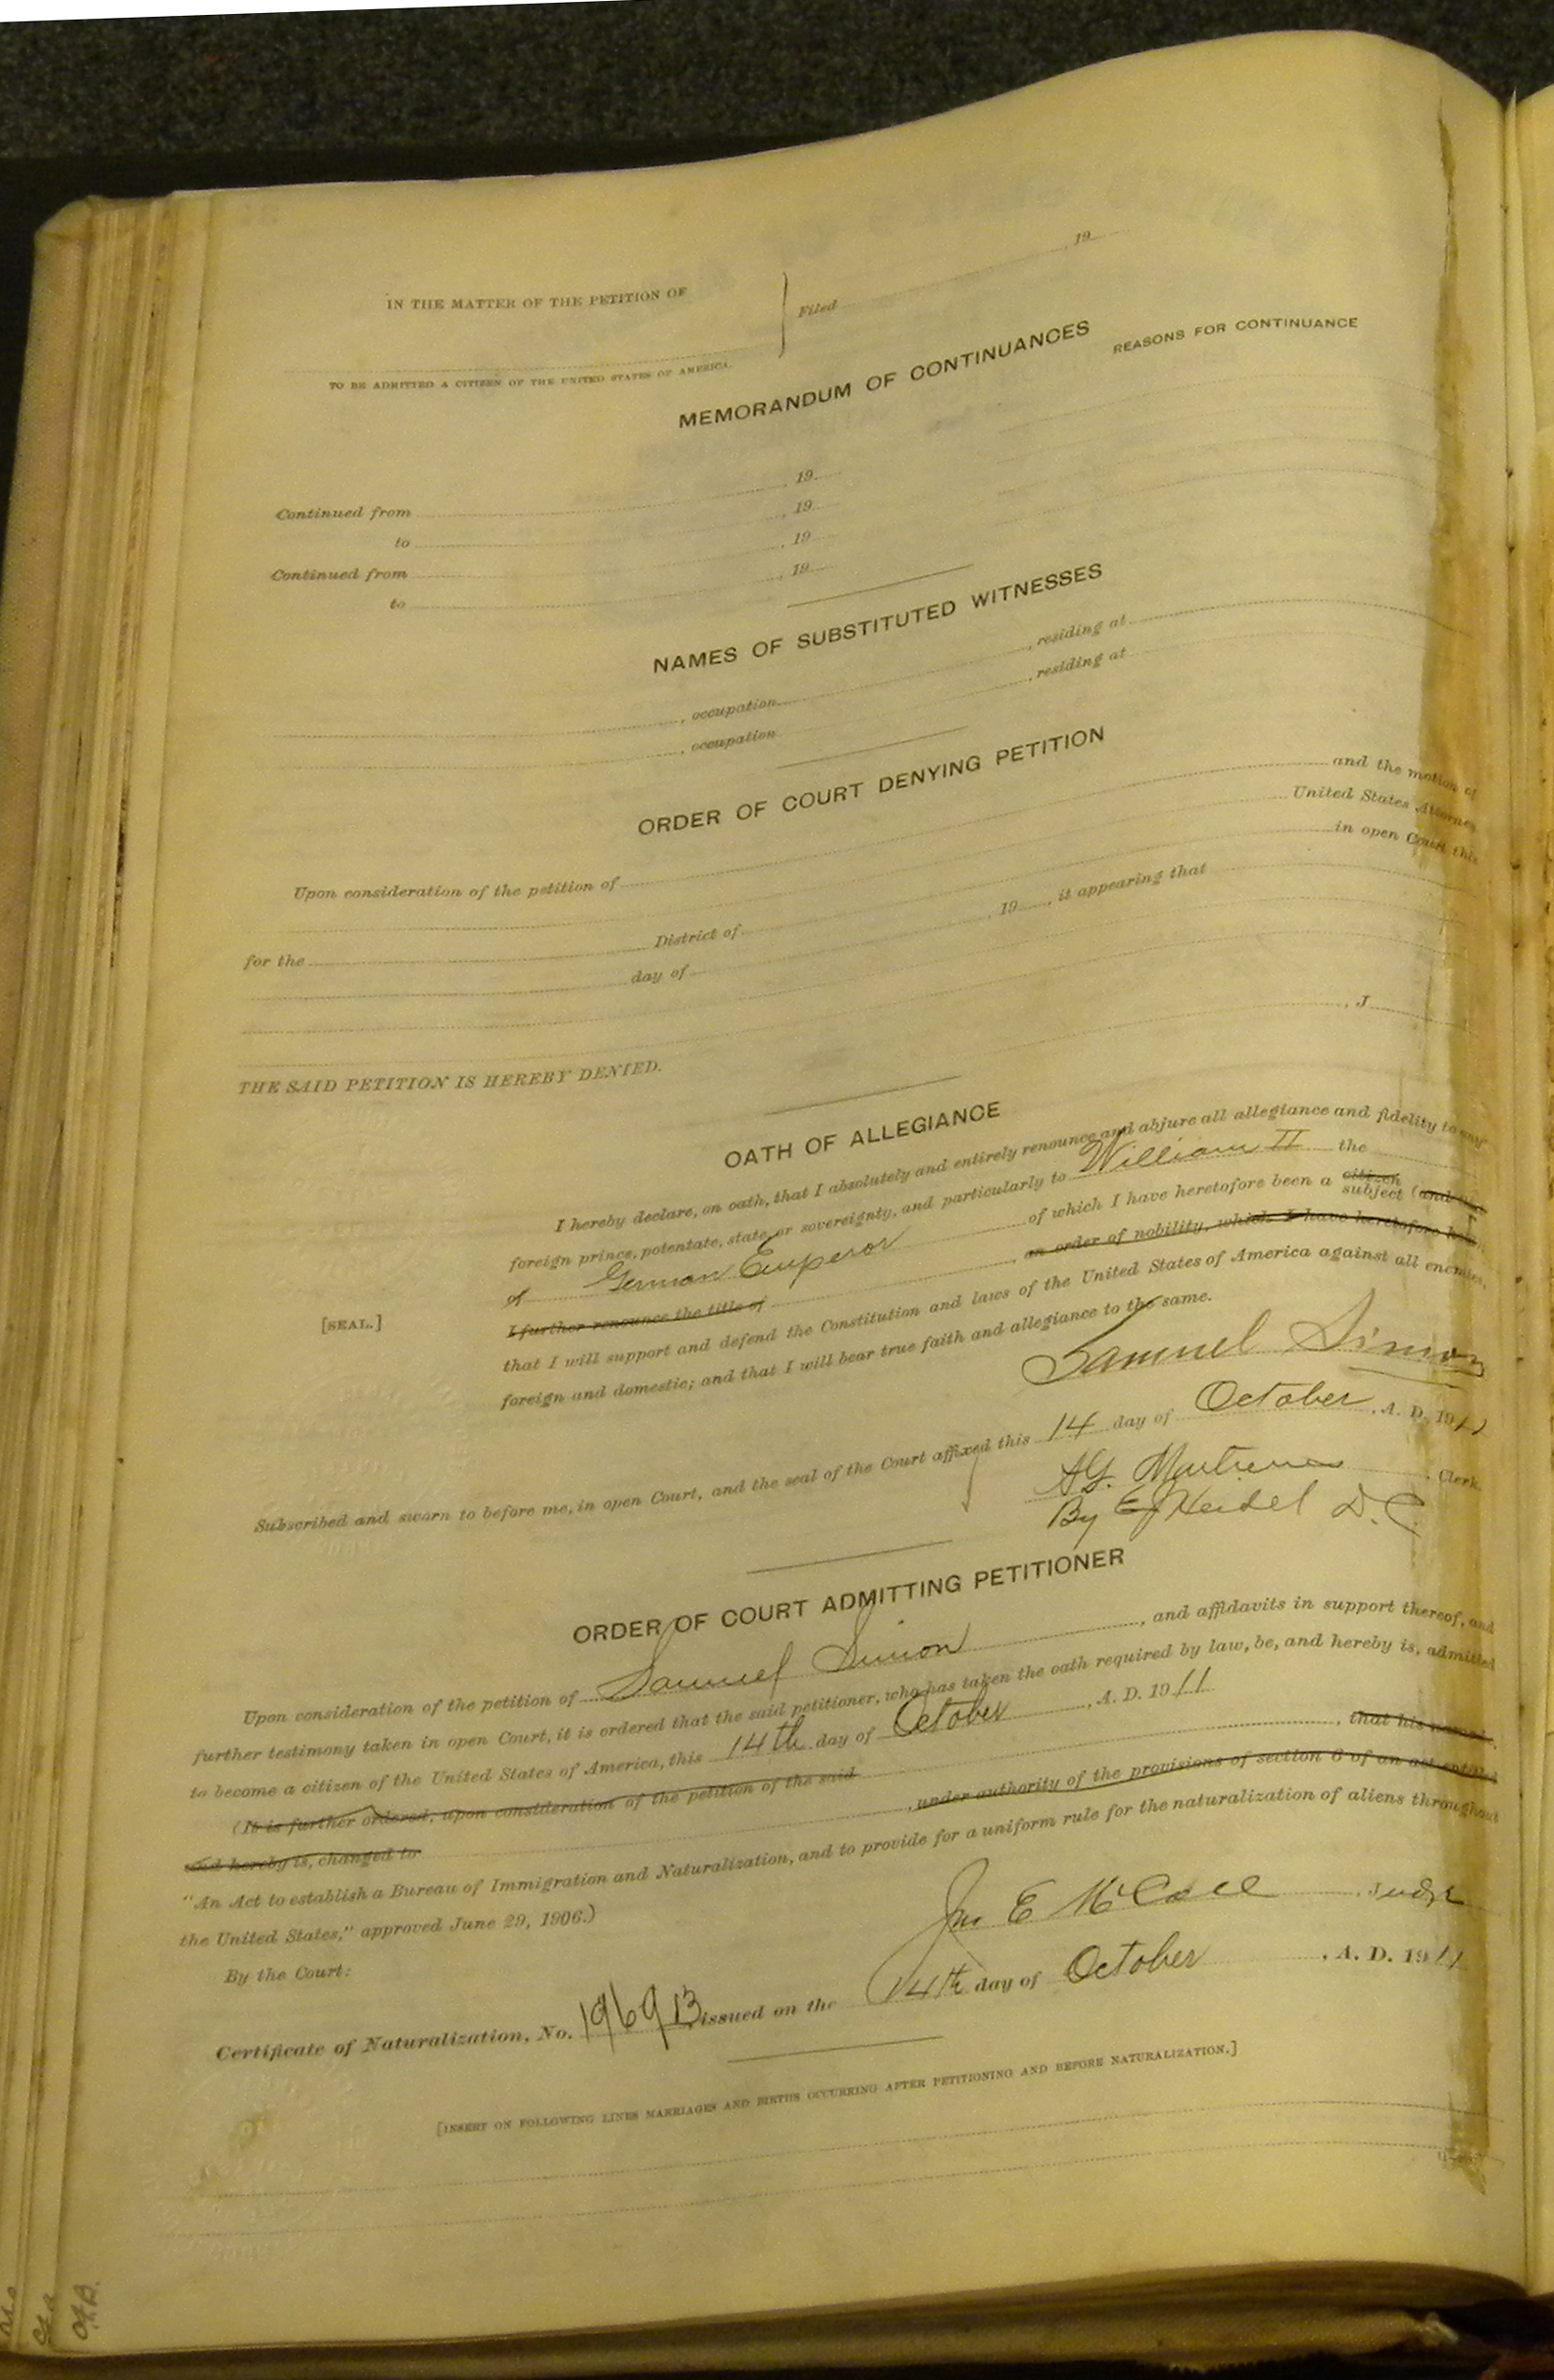 IN THE MATTER OF THE PETITION OF
Filed , 19
TO BE ADMITTED A CITIZEN OF THE UNITED STATES OF AMERICA.
MEMORANDUM OF CONTINUANCES
REASONS FOR CONTINUANCE
Continued from , 19
to , 19
Continued from , 19
to , 19
NAMES OF SUBSTITUTED WITNESSES
, occupation , residing at
, occupation , residing at
ORDER OF COURT DENYING PETITION
Upon consideration of the petition of and the motion of
United States Attorney
for the District of in open Court this
day of , 19 , it appearing that
, J
THE SAID PETITION IS HEREBY DENIED.
OATH OF ALLEGIANCE
I hereby declare, on oath, that I absolutely and entirely renounce and abjure all allegiance and fidelity to any
foreign prince, potentate, state, or sovereignty, and particularly to William II the
of German Emperor of which I have heretofore been a citizen subject (and
I further renounce the title of , an order of nobility, which I have heretofore
that I will support and defend the Constitution and laws of the United States of America against all enemies,
foreign and domestic; and that I will bear true faith and allegiance to the same.
[SEAL.]
Samuel Simon
Subscribed and sworn to before me, in open Court, and the seal of the Court affixed this 14 day of October , A. D. 1911
, Clerk.
By D.C
ORDER OF COURT ADMITTING PETITIONER
Upon consideration of the petition of Samuel Simon , and affidavits in support thereof, and
further testimony taken in open Court, it is ordered that the said petitioner, who has taken the oath required by law, be, and hereby is, admitted
to become a citizen of the United States of America, this 14th day of October , A. D. 1911
(It is further ordered, upon consideration of the petition of the said , that his name
and hereby is, changed to , under authority of the provisions of section 6 of an act entitled
"An Act to establish a Bureau of Immigration and Naturalization, and to provide for a uniform rule for the naturalization of aliens throughout
the United States," approved June 29, 1906.)
By the Court:
Jno E McCall , Judge
Certificate of Naturalization, No. 196913, issued on the 14th day of October , A. D. 1911
[INSERT ON FOLLOWING LINES MARRIAGES AND BIRTHS OCCURRING AFTER PETITIONING AND BEFORE NATURALIZATION.]